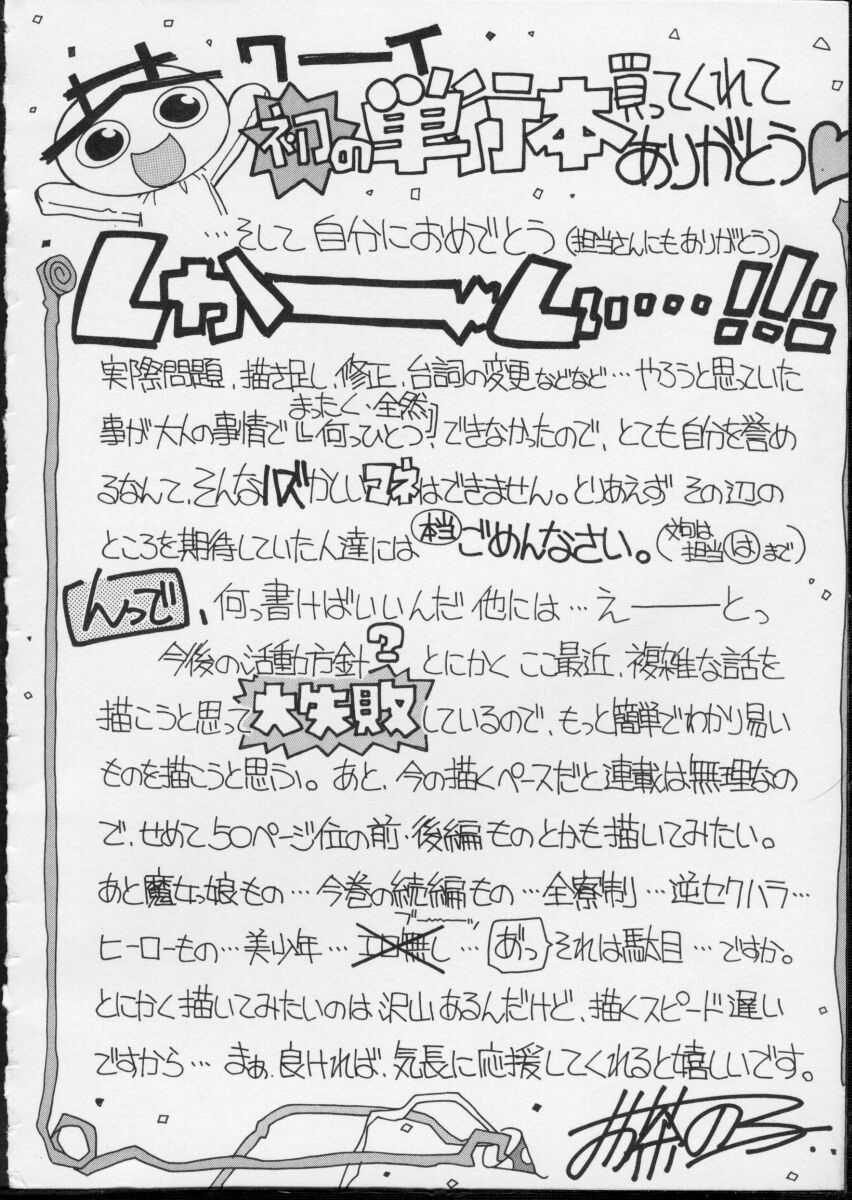 ワーイ
初の単行本買ってくれて
ありがとう♥
…そして自分におめでとう(担当さんにもありがとう)
しかーーしぃ…!!!
実際問題、描き足し、修正、台詞の変更などなど…やろうと思っていた
まったく、全然
事が大人の事情で『何っひとつ』できなかったので、とても自分を誉め
るなんて、そんなハズかしいマネはできません。とりあえずその辺の
ところを期待していた人達には本当ごめんなさい。(文句は担当(は)まで)
んっで、何っ書けばいいんだ他には…えーーーとっ
今後の活動方針?とにかくここ最近、複雑な話を
描こうと思って大失敗しているので、もっと簡単でわかり易い
ものを描こうと思うっ。あと、今の描くペースだと連載は無理なの
で、せめて50ページ位の前・後編ものとかも描いてみたい。
あと魔女っ娘もの…今巻の続編もの…全寮制…逆セクハラ…
ブーーーッ
ヒーローもの…美少年…エロ無し…おっそれは駄目…ですか。
とにかく描いてみたいのは沢山あるんだけど、描くスピード遅い
ですから…まぁ、良ければ、気長に応援してくれると嬉しいです。